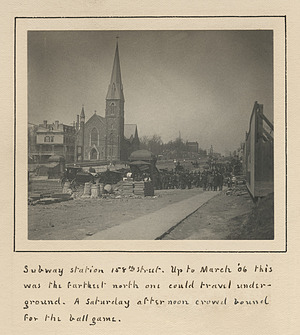 Subway station 158th street. Up to March '06 this
was the farthest north one could travel under-
ground. A Saturday afternoon crowd bound
for the ball game.